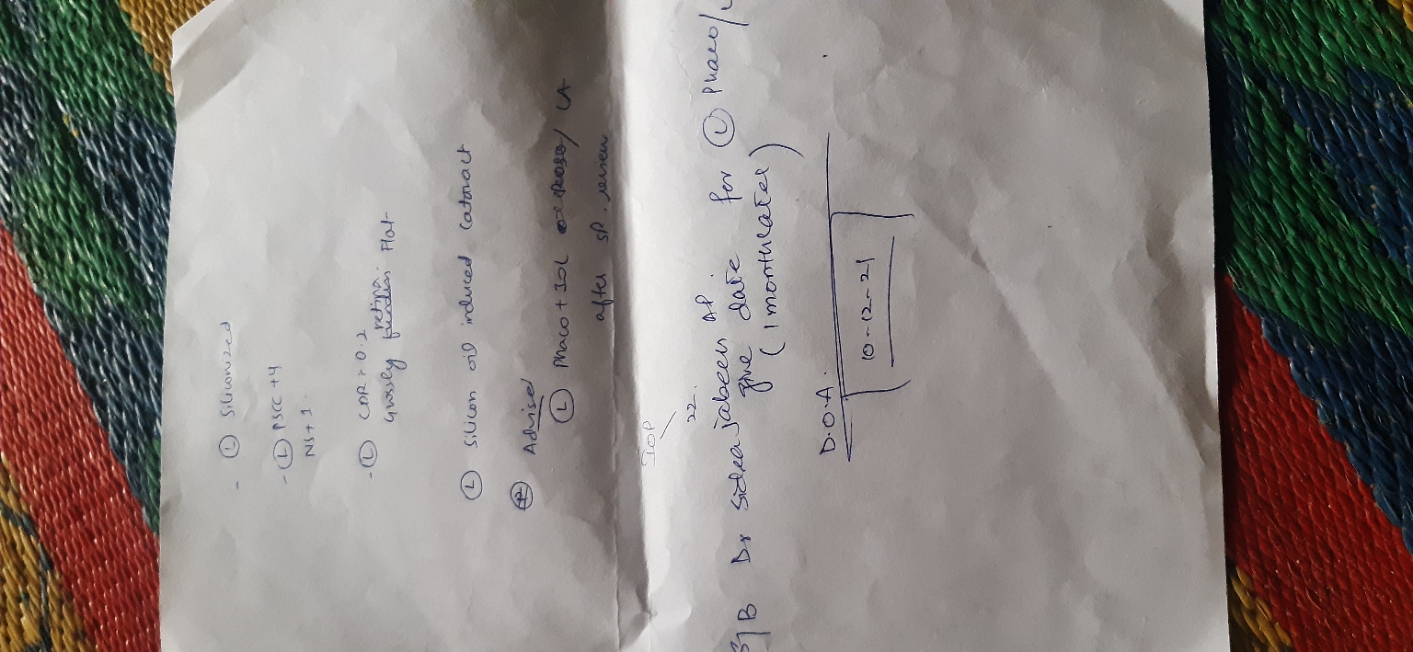 - Ⓛ Siliconized
- Ⓛ PSCC +4
NS+1.
- Ⓛ CDR > 0.2
Grossly retina. Flat
Ⓛ Silicon oil induced cataract
Advised
Ⓛ Phaco + IOL / LA
after SP. review
IOP
22.
S/B Dr Sidra Jabeen AP
give date for Ⓛ Phaco/
(1 month later)
D.O.A.
10-12-21